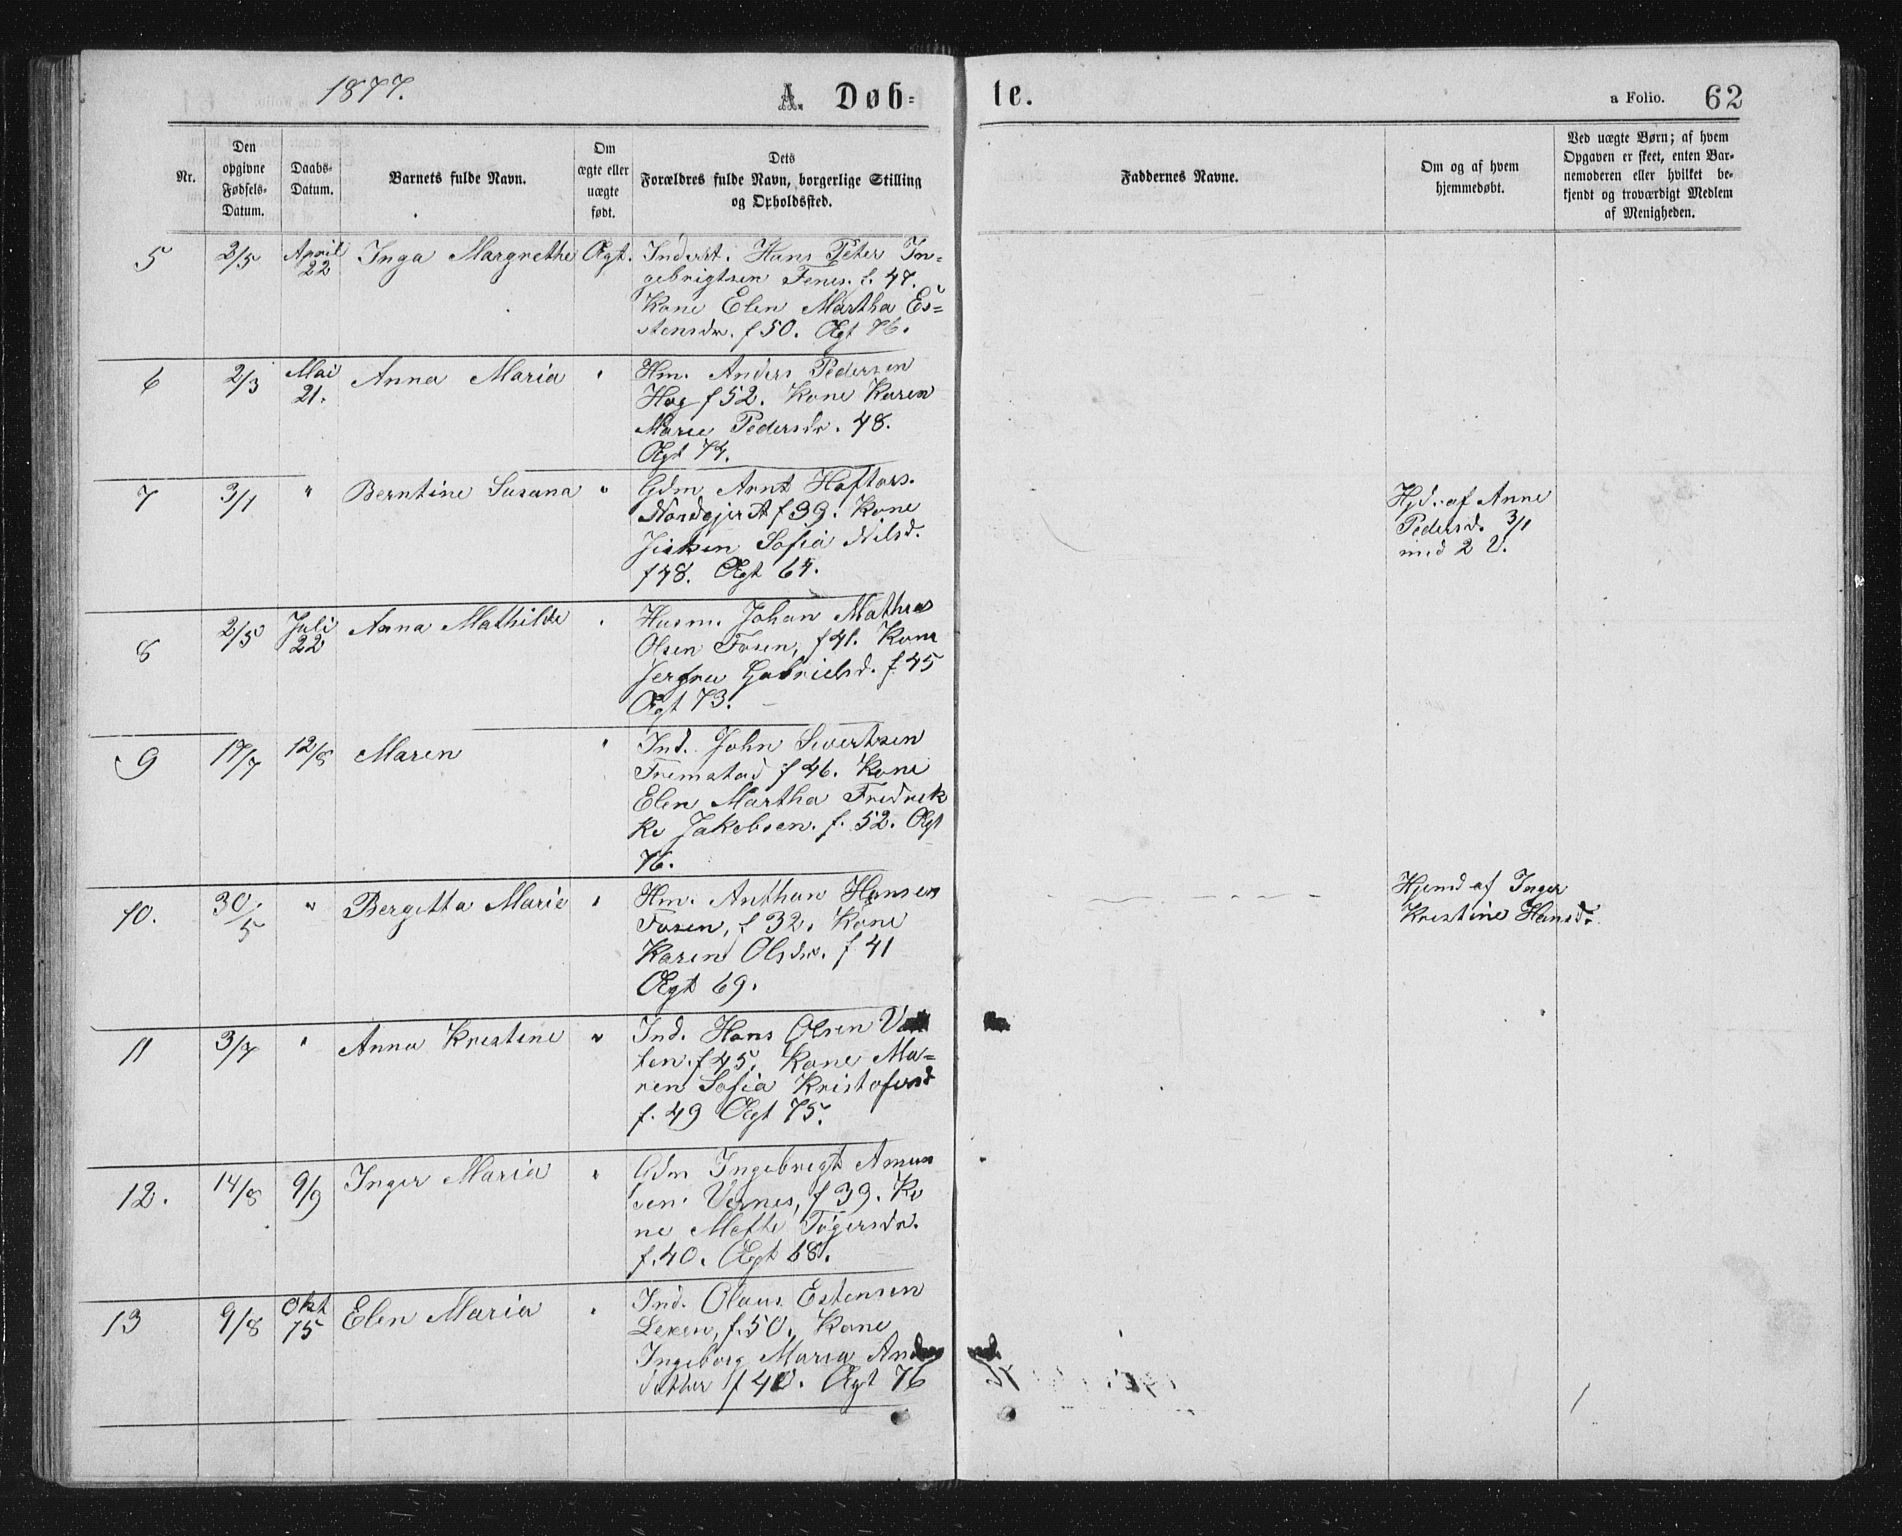 1877.
A. Døb-
te.
a Folio. 62
Nr.
Den
opgivne
Fødsels-
Datum.
Daabs-
Datum.
Barnets fulde Navn.
Om
ægte eller
uægte
født.
Dets
Forældres fulde Navn, borgerlige Stilling
og Opholdssted.
Faddernes Navne.
Om og af hvem
hjemmedøbt.
Ved uægte Børn; af hvem
Opgaven er skeet, enten Bar-
nemoderen eller hvilket be-
kjendt og troværdigt Medlem
af Menigheden.
5 2/5 April 22 Inga Margrethe Ægt. Inderst. Hans Peter In-
gebrigtsen Fenes. f. 47.
Kone Elen Martha Es-
tensdr. f 50. Ægt 76.
6 2/3 Mai 21. Anna Maria " Hm. Anders Pedersen
Hag f 52. Kone Karen
Marie Pedersdr. 48.
Ægt 74.
7 3/1 " Berntine Susana " Gdm Arnt Haftors.
f 39. Kone
Sofia Nilsd.
f 48. Ægt 64.
Hjd. af Anne
Pedersd. 3/1
med 2 V.
8 2/5 Juli 22 Anna Mathilde " Husm. Johan Mathias
Olsen Fosen, f 41. Kone
Gabrielsd. f. 45
Ægt 73.
9 17/7 12/8 Maren " Ind. John Sivertsen
Tremstad f 46. Kone
Elen Martha Fredrek
ke Jakobsen. f. 52. Ægt
76.
10. 30/5 " Bergitta Marie " Hm. Anthon Hansen
Fosen, f 32. Kone
Karen Olsdr. f 41
Ægt 69.
Hjemd af Inger
Kristine Hansd.
11 3/7 " Anna Kristine " Ind. Hans Olsen
ten. f 45. Kone Ma-
ren Sofia Kristofersd
f. 49 Ægt 75.
12. 14/8 9/9 Inger Maria " Gdm Ingebrigt Amun
sen Vernes, f 39. Ko
ne Mette Tøgersdr.
f. 40. Ægt 68.
13 9/8 Okt 15 Elen Maria " Ind. Olaus Estensen
Lexen, f. 50. Kone
Ingeborg Maria
datter f 40. Ægt 76